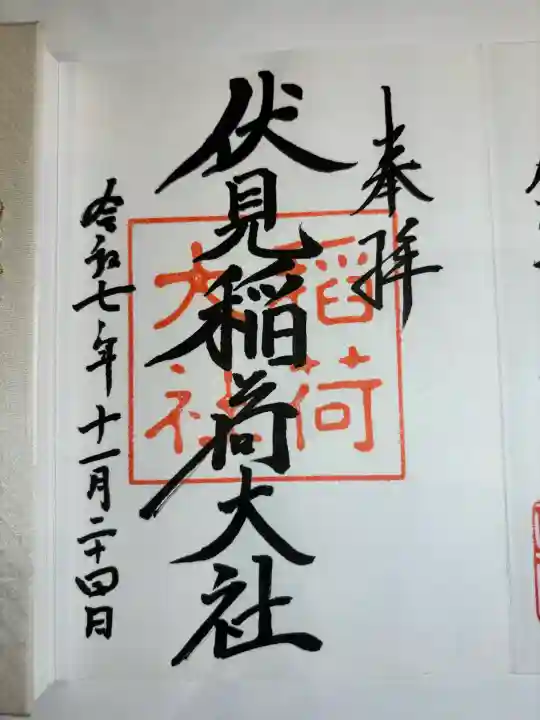 奉拝
伏見稲荷大社
稲荷
大社
令和七年十一月二十四日